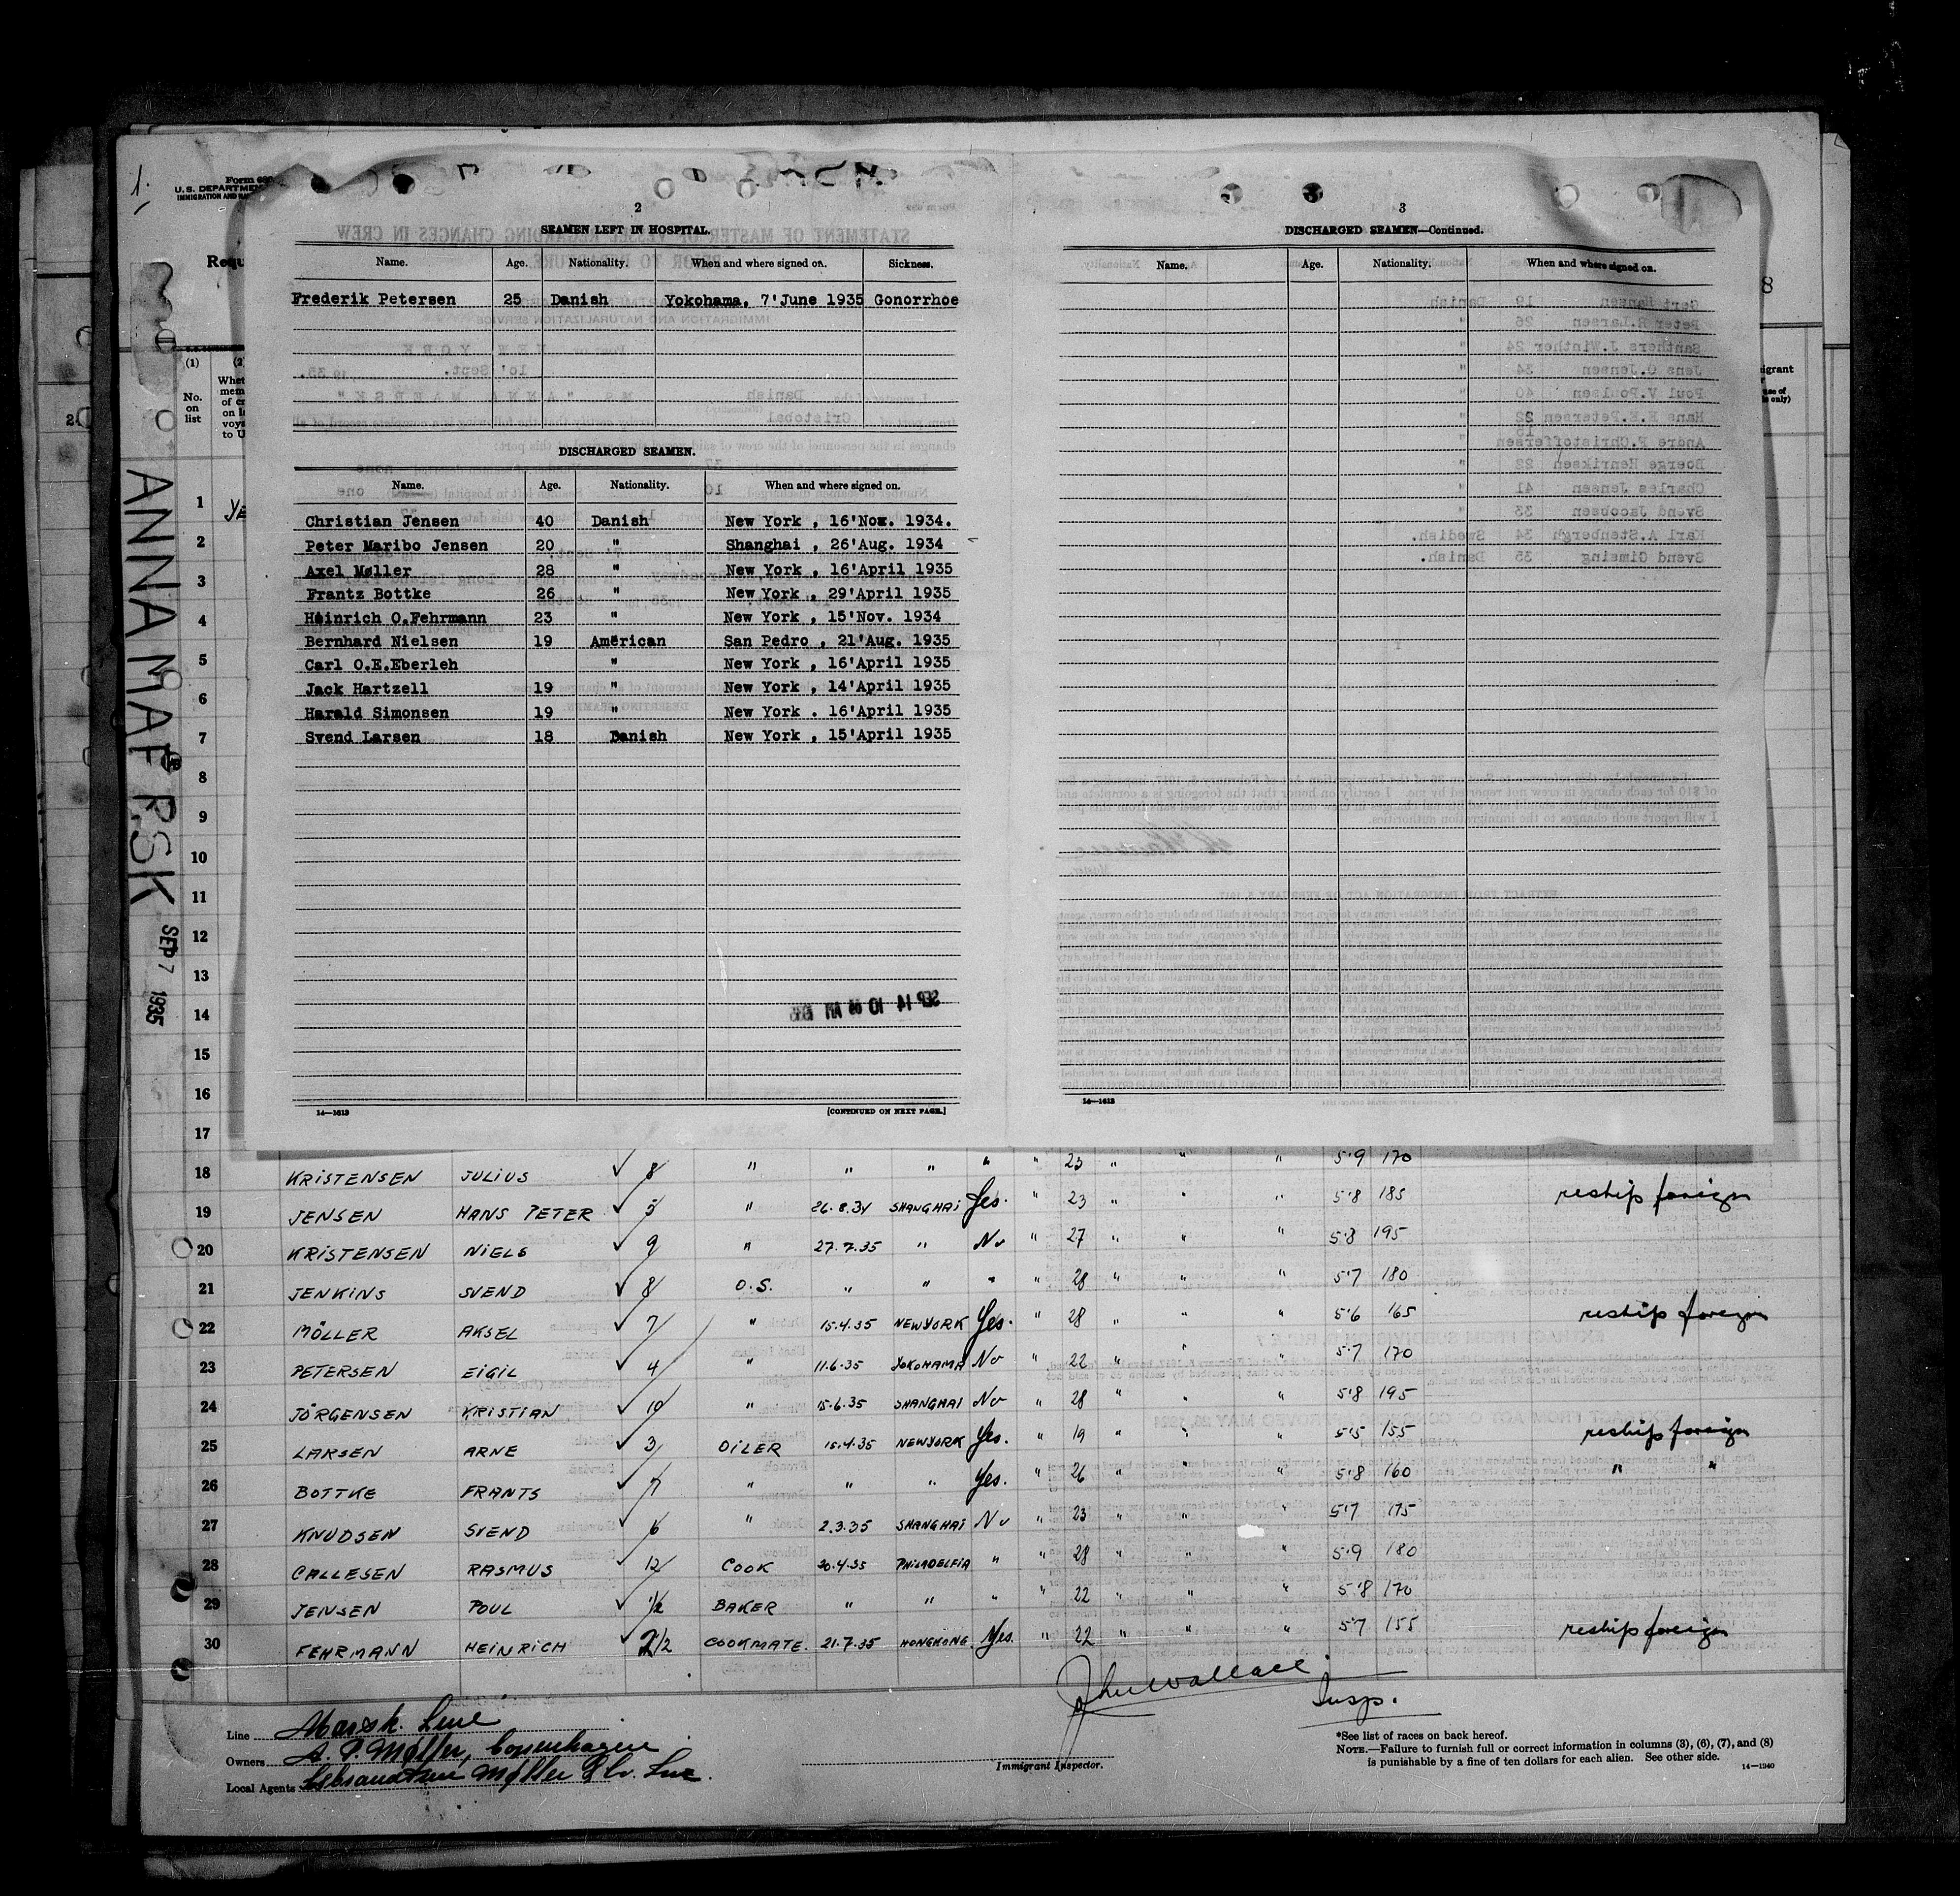 1.
Form 680
U. S. DEPARTMEN
IMMIGRATION AND NA
Requ
(1)
No.
on
list
Whet
mem
of cr
on l
voya
to U
ANNA MAERSK
SEP 7 1935
2
SEAMEN LEFT IN HOSPITAL.
Name. Age. Nationality. When and where signed on. Sickness.
Frederik Petersen 25 Danish Yokohama, 7'June 1935 Gonorrhoe
DISCHARGED SEAMEN.
Name. Age. Nationality. When and where signed on.
Christian Jensen 40 Danish New York , 16'Nov. 1934.
Peter Maribo Jensen 20 " Shanghai , 26'Aug. 1934
Axel Møller 28 " New York , 16'April 1935
Frantz Bottke 26 " New York , 29'April 1935
Heinrich O.Fehrmann 23 " New York , 15'Nov. 1934
Bernhard Nielsen 19 American San Pedro , 21'Aug. 1935
Carl O.E.Eberleh " New York , 16'April 1935
Jack Hartzell 19 " New York , 14'April 1935
Harald Simonsen 19 " New York . 16'April 1935
Svend Larsen 18 Danish New York , 15'April 1935
14—1613
[CONTINUED ON NEXT PAGE.]
3
DISCHARGED SEAMEN—Continued.
Name. Age. Nationality. When and where signed on.
14—1613
8
1
2
3
4
5
6
7
8
9
10
11
12
13
14
15
16
17
18 KRISTENSEN JULIUS 8 " " " " " 23 " " " 5'9 170
19 JENSEN HANS PETER 5 " 26.8.34 SHANGHAI Yes. " 23 " " " 5'8 185 reship foreign
20 KRISTENSEN NIELS 9 " 27.7.35 " No " 27 " " " 5'8 195
21 JENKINS SVEND 8 O.S. " " " " 28 " " " 5'7 180
22 MÖLLER AKSEL 7 " 15.4.35 NEWYORK Yes. " 28 " " " 5'6 165 reship foreign
23 PETERSEN EIGIL 4 " 11.6.35 YOKOHAMA No " 22 " " " 5'7 170
24 JÖRGENSEN KRISTIAN 10 " 15.6.35 SHANGHAI No " 28 " " " 5'8 195
25 LARSEN ARNE 3 OILER 15.4.35 NEWYORK Yes. " 19 " " " 5'5 155 reship foreign
26 BOTTKE FRANTS 7 " " " Yes. " 26 " " " 5'8 160 " "
27 KNUDSEN SVEND 6 " 2.3.35 SHANGHAI No " 23 " " " 5'7 175
28 CALLESEN RASMUS 12 COOK 30.4.35 PHILADELFIA " " 28 " " " 5'9 180
29 JENSEN POUL 1/2 BAKER " " " " 22 " " " 5'8 170
30 FEHRMANN HEINRICH 2 1/2 COOKMATE. 21.7.35 HONGKONG Yes. " 22 " " " 5'7 155 reship foreign
John Wallace
Insp.
Line Maersk Line
Owners A. P. Møller, Copenhagen
Local Agents Møller & Co. Inc.
Immigrant Inspector.
*See list of races on back hereof.
NOTE.—Failure to furnish full or correct information in columns (3), (6), (7), and (8)
is punishable by a fine of ten dollars for each alien. See other side.
14—1240